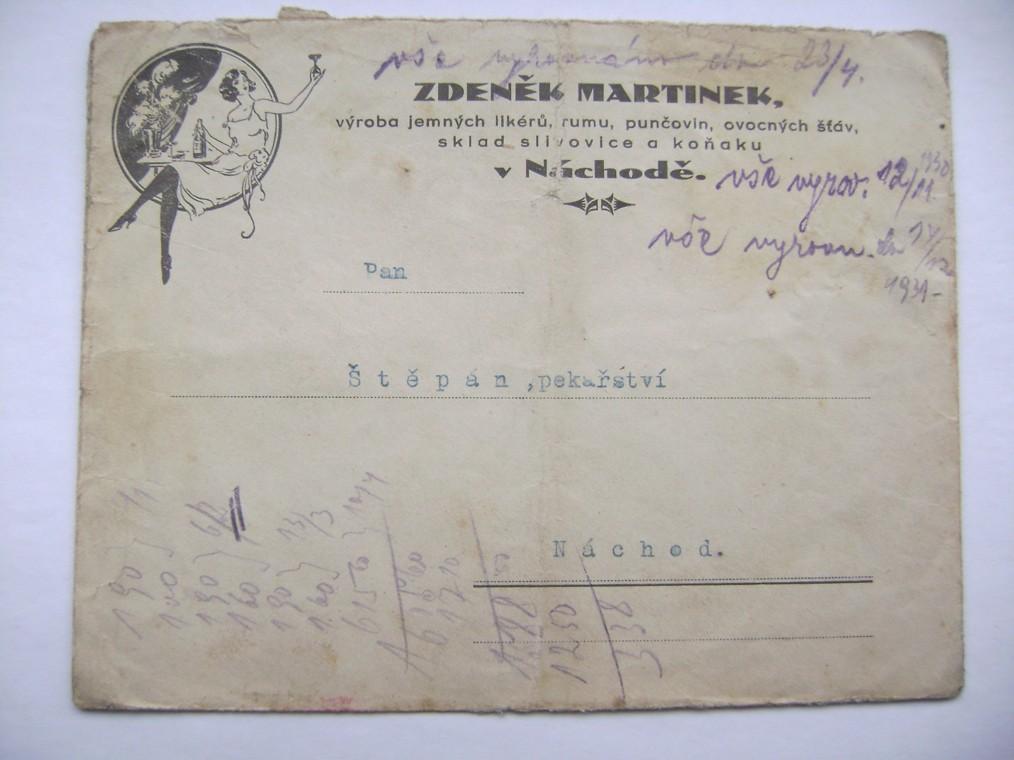 vše vyrovnáno dn 23/4.
ZDENĚK MARTINEK,
výroba jemných likérů, rumu, punčovin, ovocných šťáv,
sklad slivovice a koňaku
v Náchodě.
vše vyrov. 12/11 1930
vše vyrovn.
1931-
Pan
Štěpán, pekařství
Náchod.
190
190
160
190
160
1710
1250
338